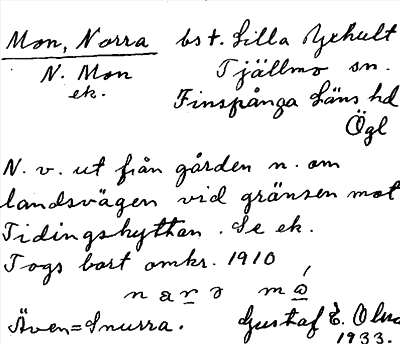 Mon, Norra bst. Lilla Gehult
N. Mon Tjällmo sn.
ek. Finspånga läns hd
Ögl
N. v. ut från gården n. om
landsvägen vid gränsen mot
Tidingshyttan. Se ek.
Togs bort omkr. 1910
Även = Snurra. Gustaf E. Olss
1933.